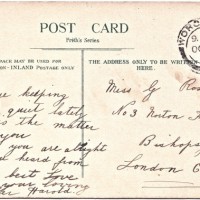 POST CARD
Frith's Series
PACE MAY BE USED FOR
ON—INLAND POSTAGE ONLY
THE ADDRESS ONLY TO BE WRITTEN
HERE.
are keeping
quiet lately
is the matter
you
you are alright
heard from
best Love
your loving
Harold.
Miss G Ros
No 3 Norton
Bishops
London
HORS